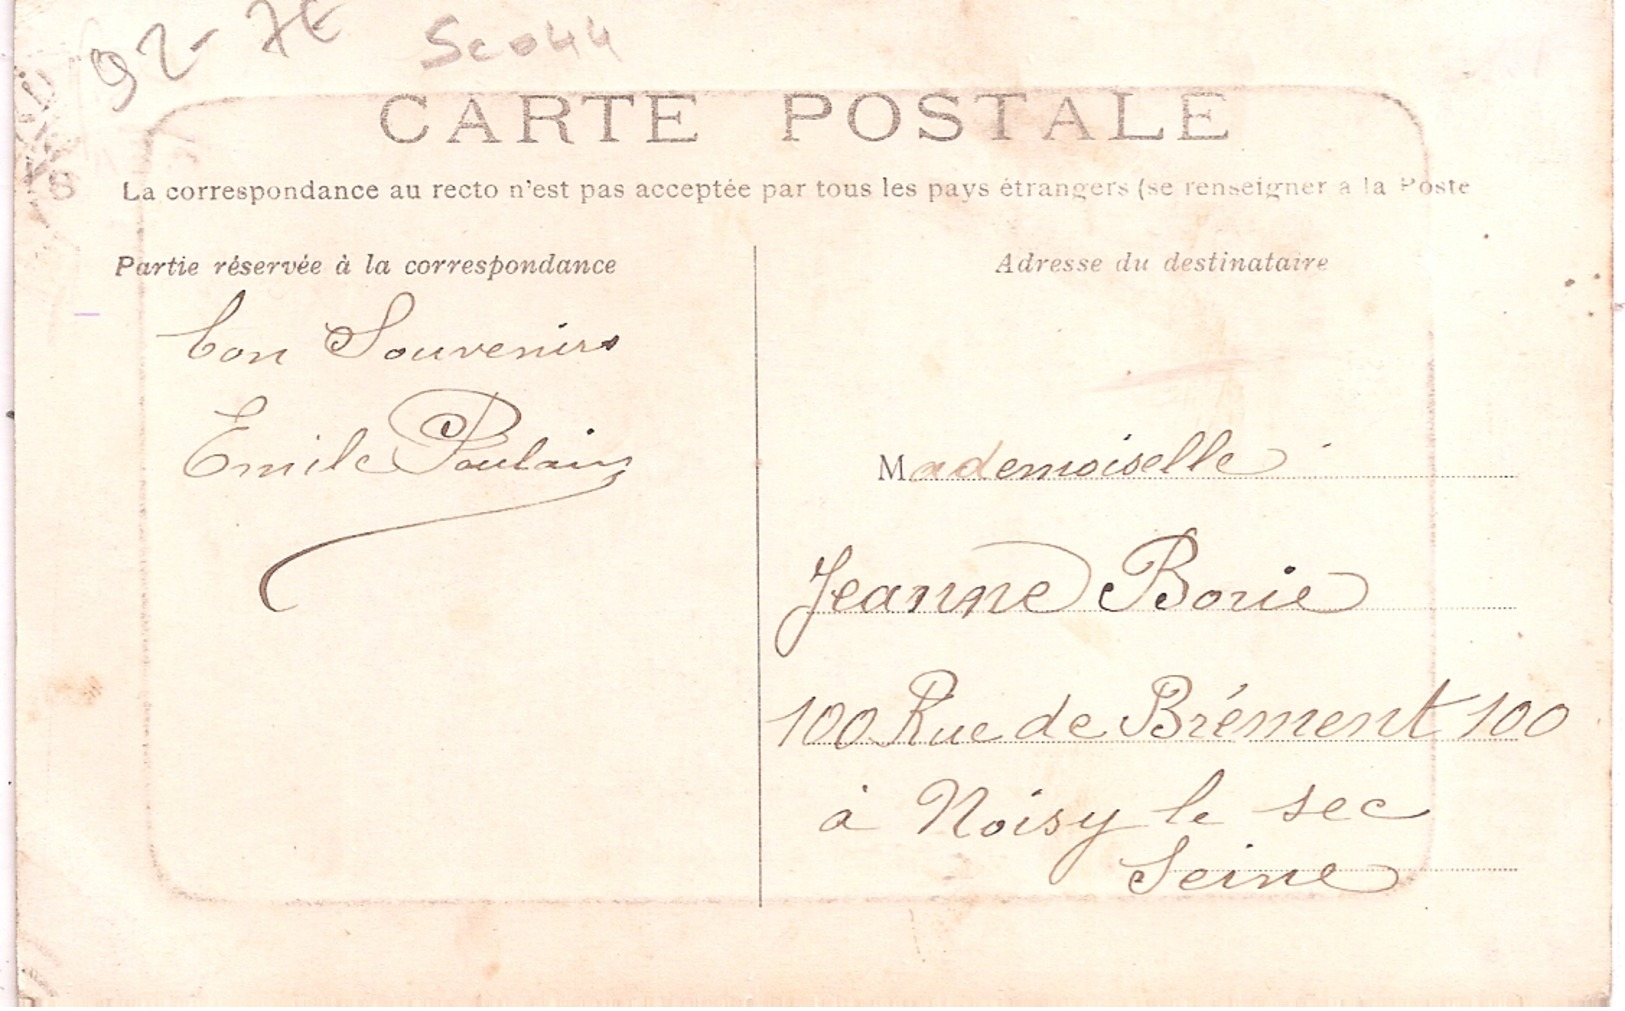 92- 7€
Sco44
CARTE POSTALE
La correspondance au recto n'est pas acceptée par tous les pays étrangers (se renseigner a la Poste
Partie réservée à la correspondance
bon Souvenirs
Emile Poulain
Adresse du destinataire
Mademoiselle
Jeanne Borie
100 Rue de Brément 100
à Noisy le sec
Seine